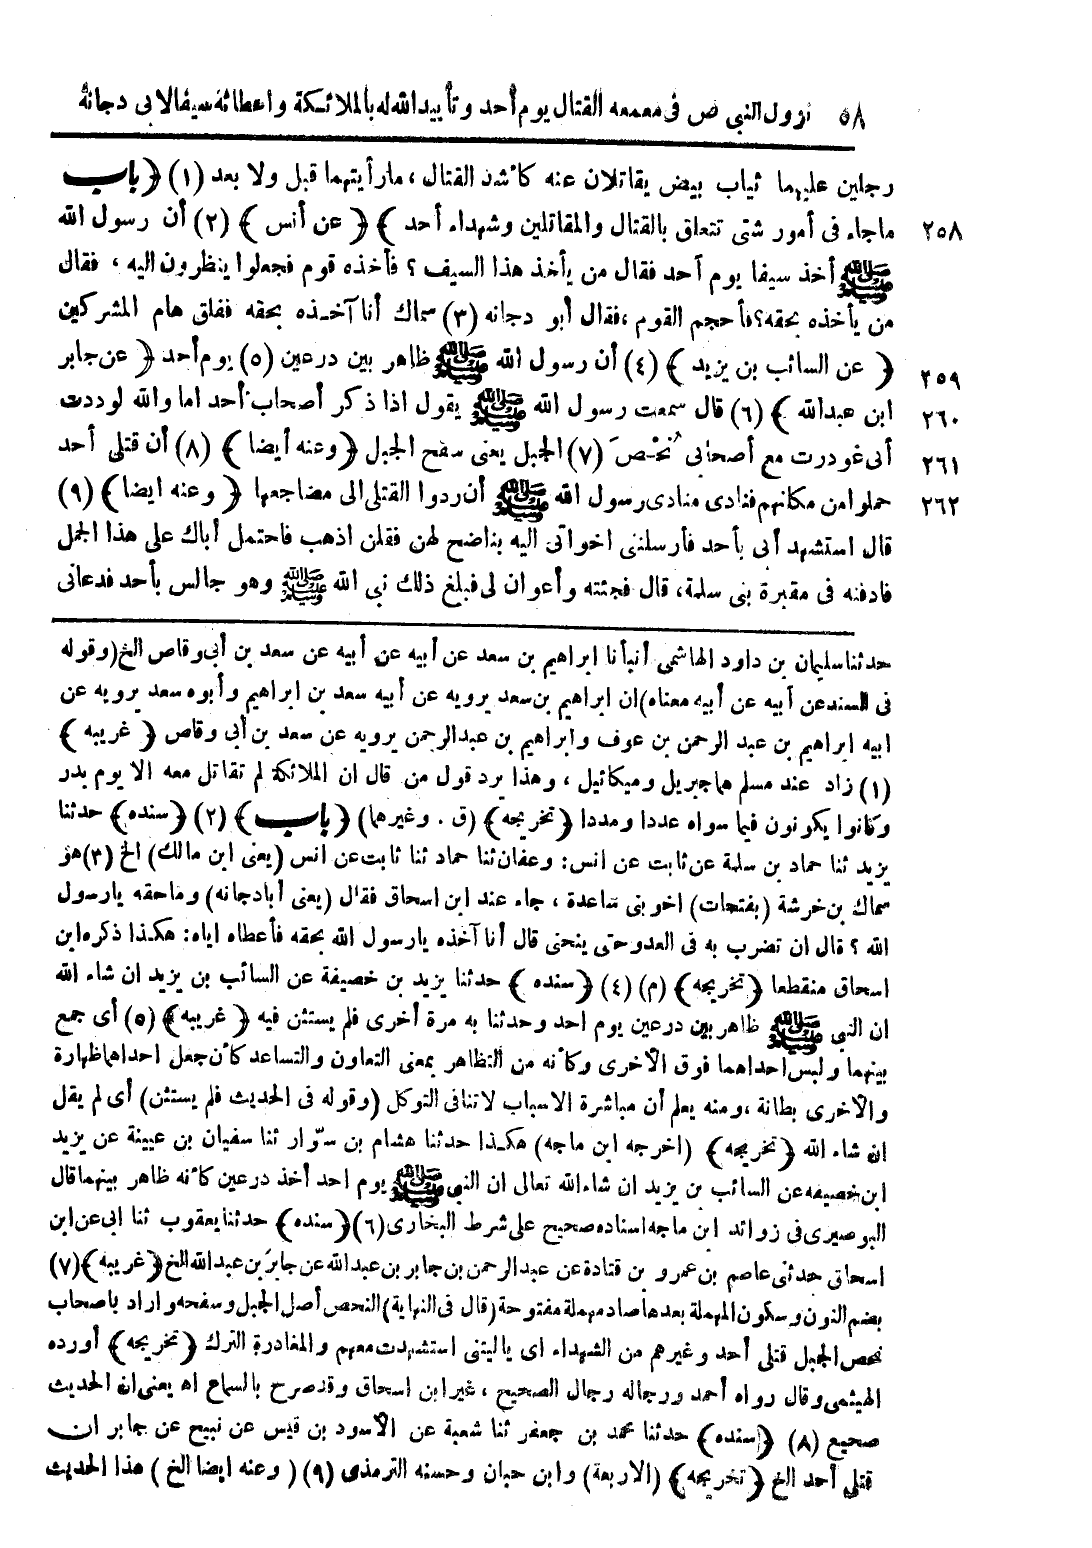 ٥٨ نزول النبي ص فى معمعه القتال يوم أحد وتأييد الله له بالملائكة واعطائة سيفا لابى دجانة
رجلين عليهما ثياب بيض يقاتلان عنه كاشد القتال ، مارأيتهما قبل ولا بعد (١) ﴿ باب
٢٥٨ ماجاء فى أمور شتى تتعلق بالقتال والمقاتلين وشهداء أحد ﴾ ﴿ عن أنس ﴾ (٢) أن رسول الله
ﷺ أخذ سيفا يوم أحد فقال من يأخذ هذا السيف ؟ فأخذه قوم فجعلوا ينظرون اليه ، فقال
من يأخذه بحقه؟ فأحجم القوم ، فقال أبو دجانه (٣) سماك أنا آخذه بحقه ففلق هام المشركين
٢٥٩ ﴿ عن السائب بن يزيد ﴾ (٤) أن رسول الله ﷺ ظاهر بين درعين (٥) يوم أحد ﴿ عن جابر
٢٦٠ ابن عبدالله ﴾ (٦) قال سمعت رسول الله ﷺ يقول اذا ذكر أصحاب أحد اما والله لوددت
٢٦١ أنى غودرت مع أصحابى نُحْصَ (٧) الجبل يعنى سفح الجبل ﴿ وعنه أيضا ﴾ (٨) أن قتلى أحد
٢٦٢ حملوا من مكانهم فنادى منادى رسول الله ﷺ أن ردوا القتلى الى مضاجعها ﴿ وعنه ايضا ﴾ (٩)
قال استشهد أبى بأحد فأرسلننى اخواتى اليه بناضح لهن فقلن اذهب فاحتمل أباك على هذا الجمل
فادفنه فى مقبرة بنى سلمة، قال فجئته وأعوان لى فبلغ ذلك نبى الله ﷺ وهو جالس بأحد فدعانى
حدثنا سليمان بن داود الهاشمى أنبأنا ابراهيم بن سعد عن أبيه عن أبيه عن سعد بن أبى وقاص الخ (وقوله
فى السند عن أبيه عن أبيه معناه) ان ابراهيم بن سعد يرويه عن أبيه سعد بن ابراهيم وأبوه سعد يرويه عن
ابيه ابراهيم بن عبد الرحمن بن عوف وابراهيم بن عبدالرحمن يرويه عن سعد بن أبى وقاص ﴿ غريبه ﴾
(١) زاد عند مسلم هما جبريل وميكائيل ، وهذا يرد قول من قال ان الملائكة لم تقاتل معه الا يوم بدر
وكانوا يكونون فيما سواه عددا ومددا ﴿ تخريجه ﴾ (ق . وغيرهما) ﴿ باب ﴾ (٢) ﴿ سنده ﴾ حدثنا
يزيد ثنا حماد بن سلمة عن ثابت عن انس: وعفان ثنا حماد ثنا ثابت عن انس (يعنى ابن مالك) الخ (٣) هو
سماك بن خرشة (بفتحات) اخو بنى ساعدة ، جاء عند ابن اسحاق فقال (يعنى أبادجانه) وماحقه يارسول
الله ؟ قال ان تضرب به فى العدو حتى ينحنى قال أنا آخذه يارسول الله بحقه فأعطاه اياه: هكذا ذكره ابن
اسحاق منقطعا ﴿ تخريجه ﴾ (م) (٤) ﴿ سنده ﴾ حدثنا يزيد بن خصيفة عن السائب بن يزيد ان شاء الله
ان النبى ﷺ ظاهر بين درعين يوم احد وحدثنا به مرة أخرى فلم يستثن فيه ﴿ غريبه ﴾ (٥) أى جمع
بينهما ولبس احداهما فوق الأخرى وكأنه من التظاهر بمعنى التعاون والتساعد كأن جعل احداهما ظهارة
والأخرى بطانة ، ومنه يعلم أن مباشرة الاسباب لا تنافى التوكل (وقوله فى الحديث فلم يستثن) أى لم يقل
ان شاء الله ﴿ تخريجه ﴾ (اخرجه ابن ماجه) هكذا حدثنا هشام بن سوّار ثنا سفيان بن عيينة عن يزيد
ابن خصيفه عن السائب بن يزيد ان شاء الله تعالى ان النبى ﷺ يوم احد أخذ درعين كأنه ظاهر بينهما قال
البوصيرى فى زوائد ابن ماجه اسناده صحيح على شرط البخارى (٦) ﴿ سنده ﴾ حدثنا يعقوب ثنا ابى عن ابن
اسحاق حدثنى عاصم بن عمرو بن قتادة عن عبد الرحمن بن جابر بن عبدالله عن جابر بن عبدالله الخ ﴿ غريبه ﴾ (٧)
بضم النون وسكون المهملة بعدها صاد مهملة مفتوحة (قال فى النهاية) النحص أصل الجبل وسفحه واراد باصحاب
نحص الجبل قتلى أحد وغيرهم من الشهداء اى ياليتنى استشهدت معهم والمغادرة الترك ﴿ تخريجه ﴾ أورده
الهيثمى وقال رواه أحمد ورجاله رجال الصحيح ، غير ابن اسحاق وقد صرح بالسماع اه يعنى ان الحديث
صحيح (٨) ﴿ سنده ﴾ حدثنا محمد بن جعفر ثنا شعبة عن الأسود بن قيس عن نبيح عن جابر ان
قتلى أحد الخ ﴿ تخريجه ﴾ (الاربعة) وابن حبان وحسنه الترمذى (٩) ( وعنه ايضا الخ ) هذا الحديث